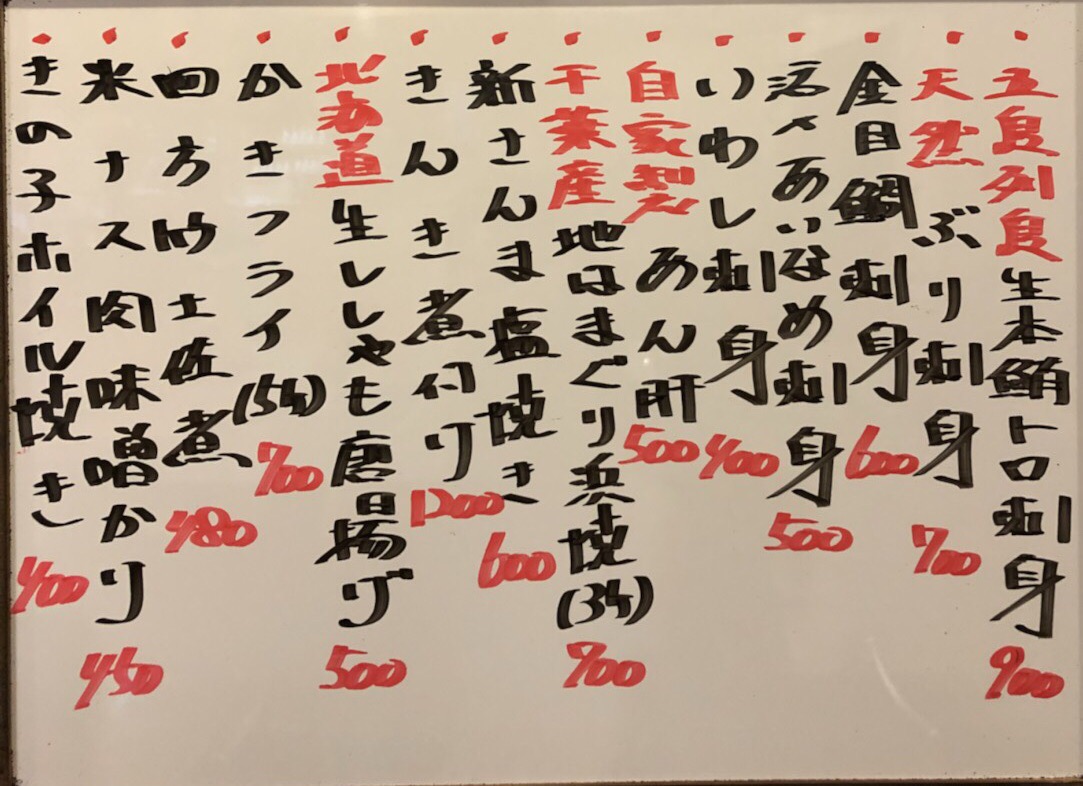 五島列島 生本鮪トロ刺身 900
天然 ぶり刺身 700
金目鯛刺身 600
活〆あいなめ刺身 500
いわし刺身 400
自家製 あん肝 500
千葉産 地はまぐり浜焼(3ケ) 700
新さんま塩焼き 600
きんき煮付け 1200
北海道 生ししゃも唐揚げ 500
かきフライ(5ケ) 700
四方竹土佐煮 480
米ナス肉味噌かけ 450
きの子ホイル焼き 400